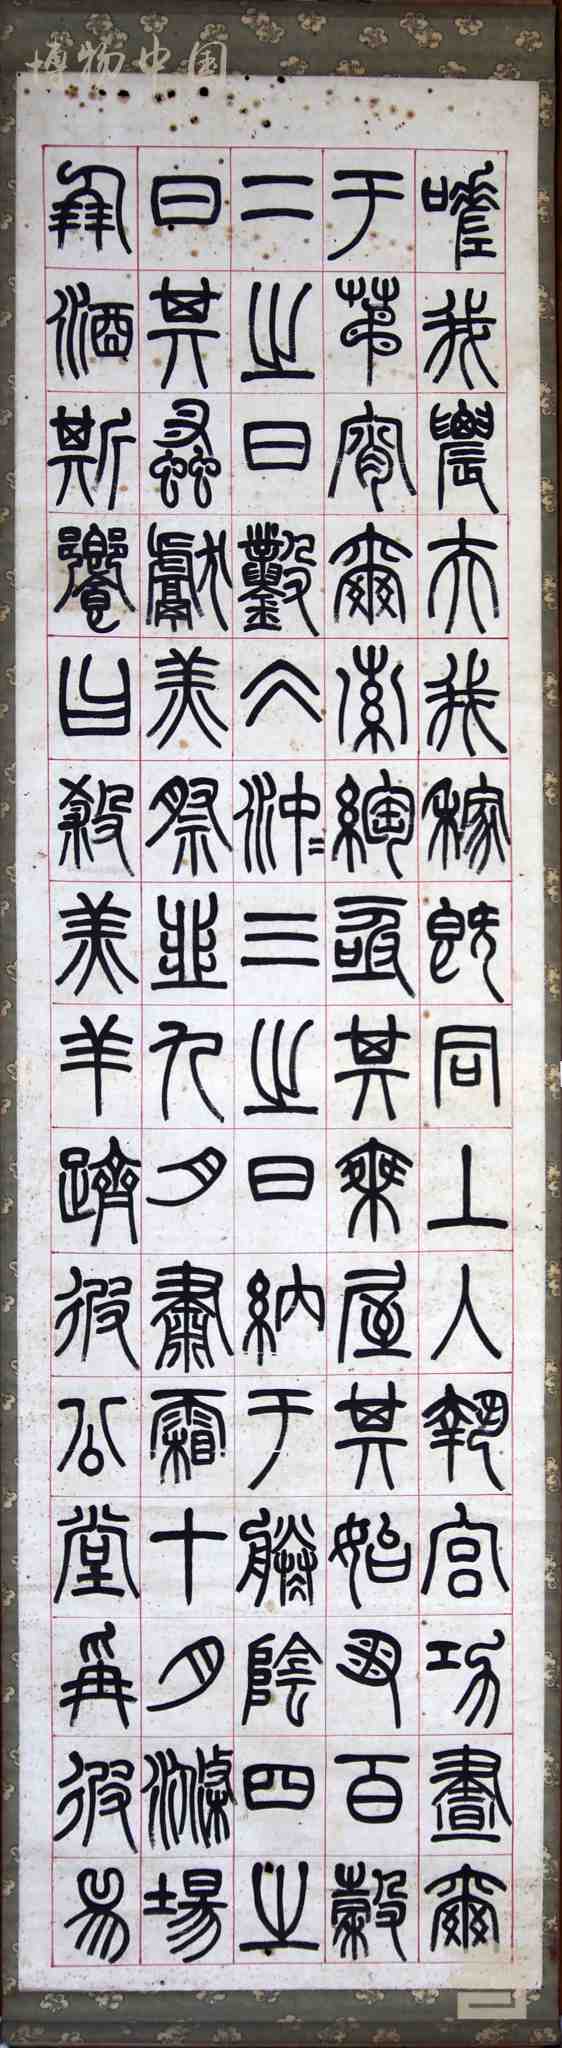 博物中国
嗟我農夫我稼既同上入執宮功晝爾
于茅宵爾索綯亟其乘屋其始播百穀
二之日鑿冰沖=三之日納于凌陰四之
日其蚤獻羔祭韭九月肅霜十月滌場
朋酒斯饗曰殺羔羊躋彼公堂爯彼兕